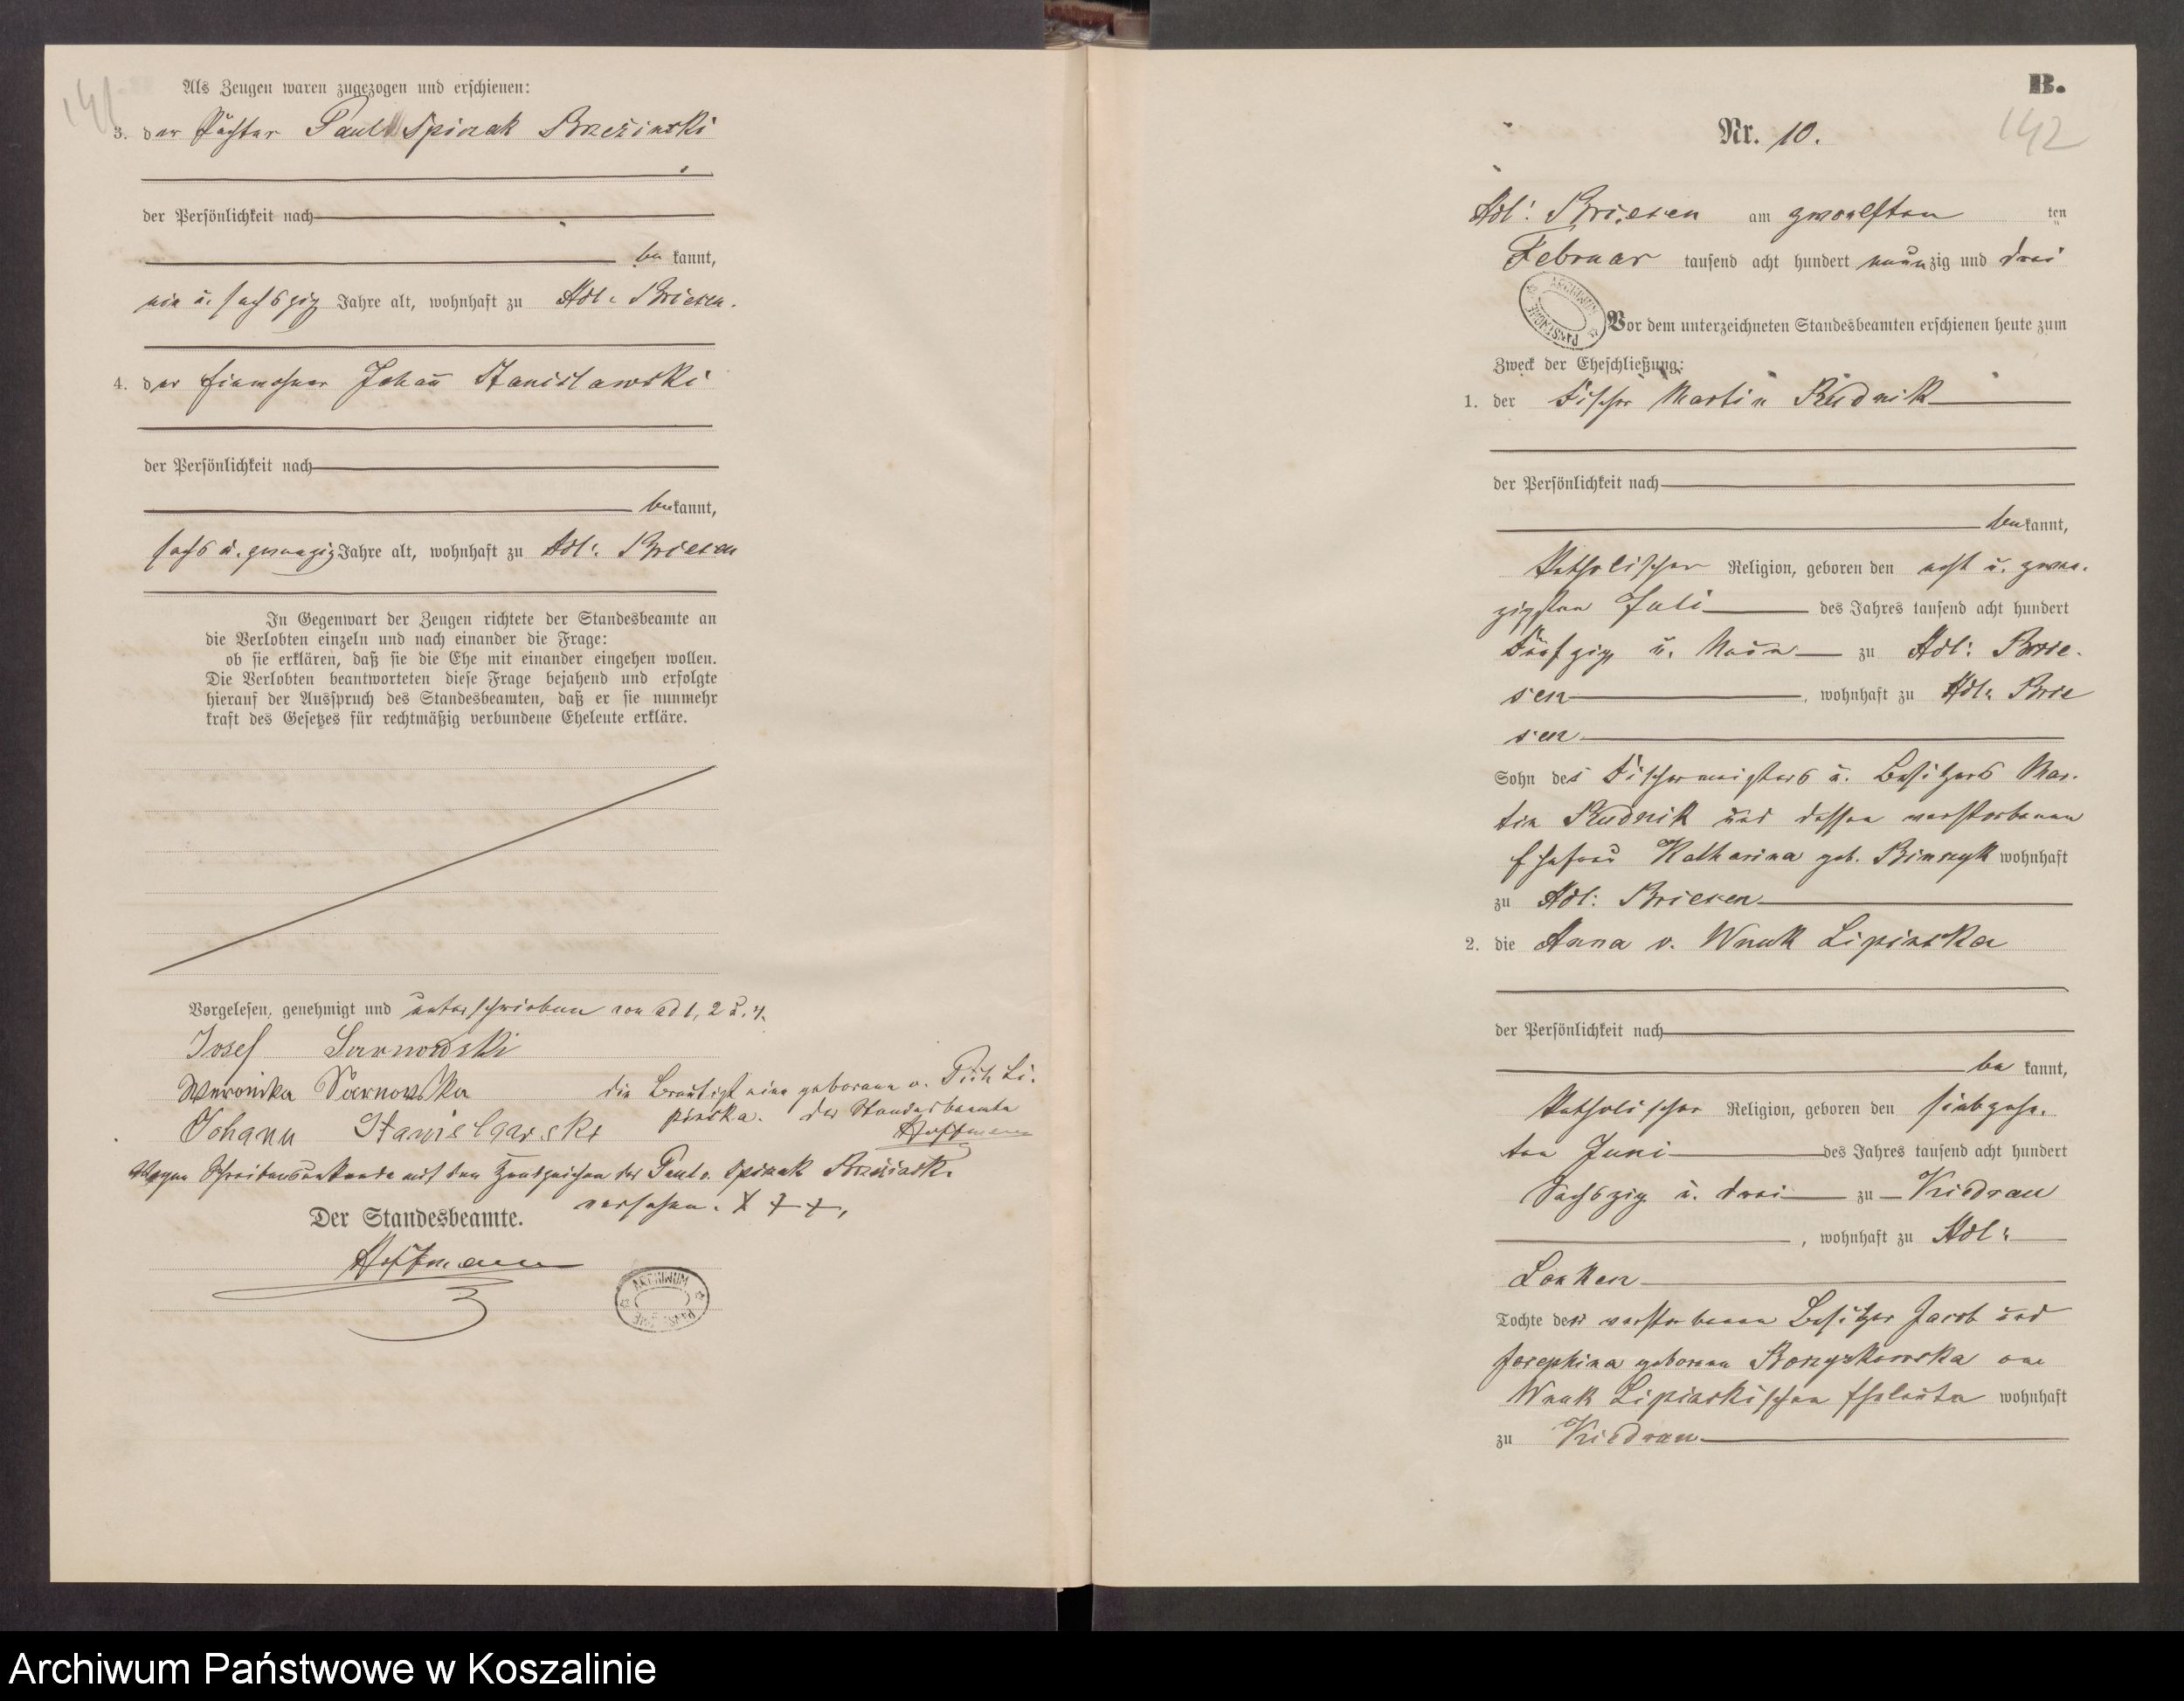 141
Als Zeugen waren zugezogen und erschienen:
3. der Pächter Paul Spiczak Brzezinski
der Persönlichkeit nach
be kannt,
ein u. sechszig Jahre alt, wohnhaft zu Adl: Briesen.
4. der Einwohner Johann Stanislawski
der Persönlichkeit nach
be kannt,
sechs u. zwanzig Jahre alt, wohnhaft zu Adl: Briesen
In Gegenwart der Zeugen richtete der Standesbeamte an
die Verlobten einzeln und nach einander die Frage:
ob sie erklären, daß sie die Ehe mit einander eingehen wollen.
Die Verlobten beantworteten diese Frage bejahend und erfolgte
hierauf der Ausspruch des Standesbeamten, daß er sie nunmehr
kraft des Gesetzes für rechtmäßig verbundene Eheleute erkläre.
Vorgelesen, genehmigt und unterschrieben von ad 1, 2 u. 4.
Josef Sarnowski
Weronika Sarnowska die Braut ist eine geborene v. Pich Li-
pinska. Der Standesbeamte
Johann Stanislawski Hoffmann
Wegen Schreibensunkunde mit den Handzeichen des Paul v. Spiczak Brzezinski
versehen. X + +,
Der Standesbeamte.
Hoffmann
ARCHIWUM PAŃSTWOWE
B.
142
Nr. 10.
Adl: Briesen am zwoelften ten
Februar tausend acht hundert neunzig und drei
ARCHIWUM PAŃSTWOWE
Vor dem unterzeichneten Standesbeamten erschienen heute zum
Zweck der Eheschließung:
1. der Fischer Martin Rudnik
der Persönlichkeit nach
be kannt,
Katholischer Religion, geboren den acht u. zwan-
zigsten Juli des Jahres tausend acht hundert
Fünfzig u. Neun zu Adl: Brie-
sen, wohnhaft zu Adl: Brie
sen
Sohn des Fischermeisters u. Besitzers Mar-
tin Rudnik und dessen verstorbenen
Ehefrau Katharina geb. Binczyk wohnhaft
zu Adl: Briesen
2. die Anna v. Wnuk Lipinska
der Persönlichkeit nach
be kannt,
Katholischer Religion, geboren den siebzehn-
ten Juni des Jahres tausend acht hundert
Sechszig u. drei zu Kiedrau
, wohnhaft zu Adl:
Lonken
Tochte der verstorbenen Besitzer Jacob und
Josephina geborene Borzyskowska von
Wnuk Lipinskischen Eheleute wohnhaft
zu Kiedrau
Archiwum Państwowe w Koszalinie